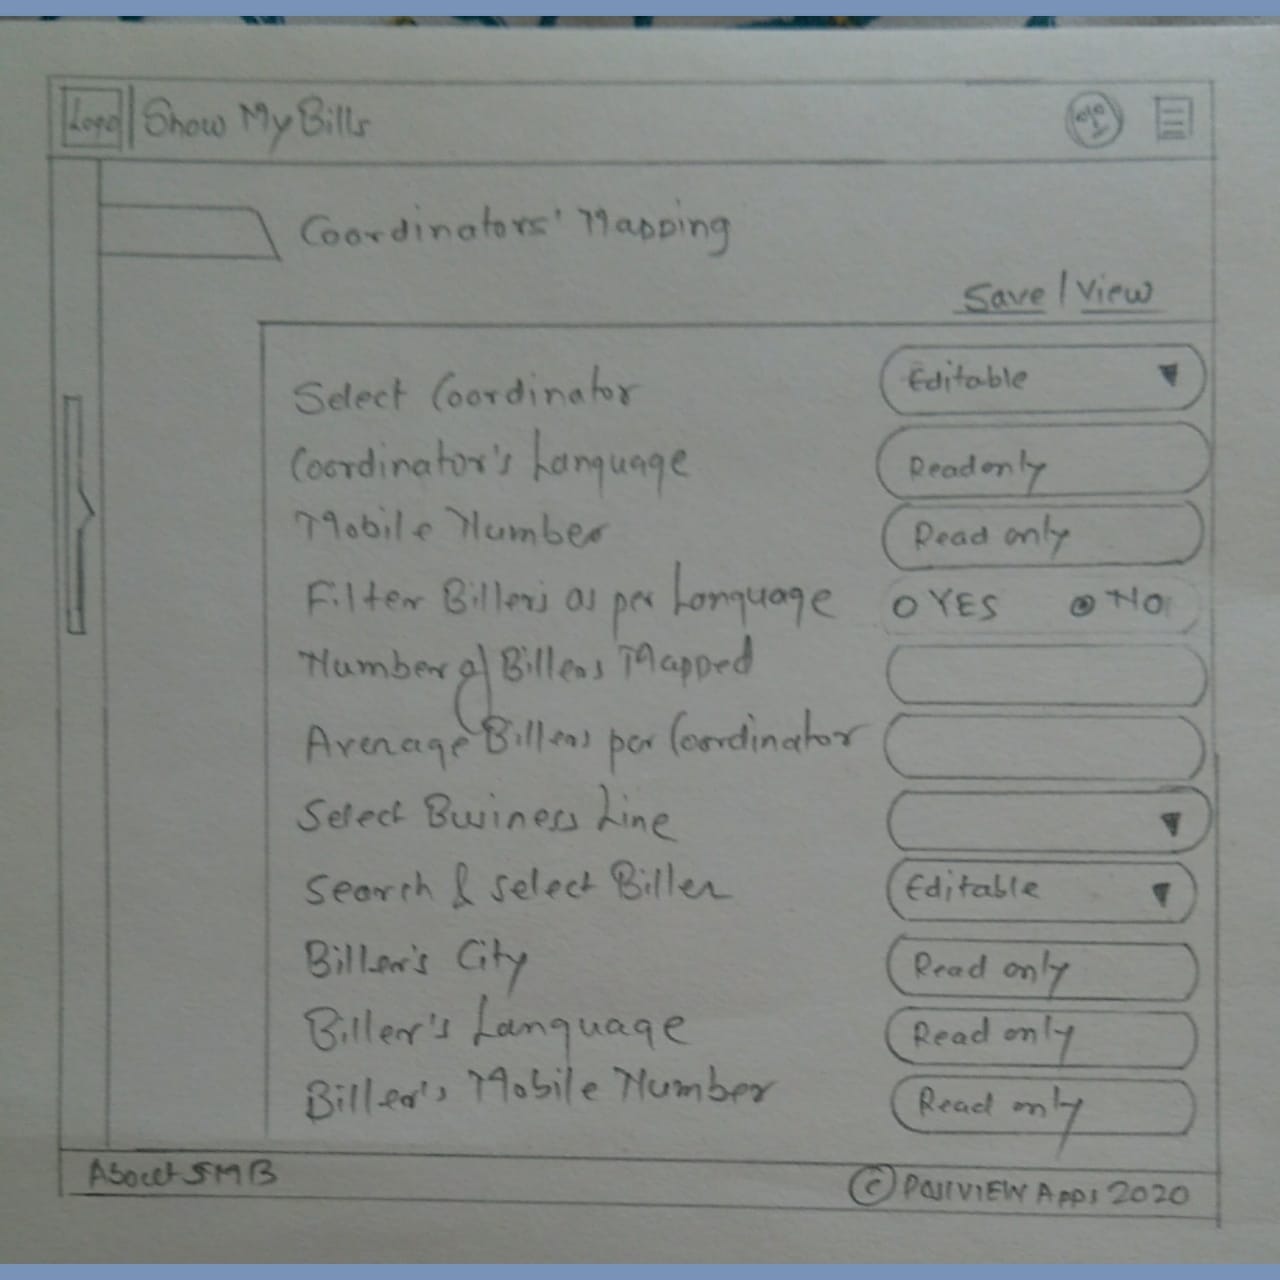 Logo Show My Bills
Coordinators' Mapping
Save / View
Select Coordinator Editable
Coordinator's Language Read only
Mobile Number Read only
Filter Billers as per Language YES NO
Number of Billers Mapped
Average Billers per Coordinator
Select Business Line
Search & select Biller Editable
Biller's City Read only
Biller's Language Read only
Biller's Mobile Number Read only
About SMB
© Apps 2020